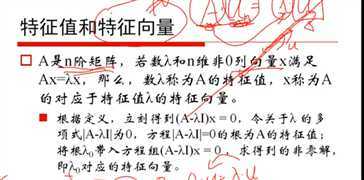 特征值和特征向量
A是n阶矩阵，若数λ和n维非0列向量x满足
Ax=λx，那么，数λ称为A的特征值，x称为A
的对应于特征值λ的特征向量。
根据定义，立刻得到(A-λI)x = 0，令关于λ的多
项式|A-λI|为0，方程|A-λI|=0的根为A的特征值；
将根λ₀带入方程组(A-λI)x = 0，求得到的非零解，
即λ₀对应的特征向量。